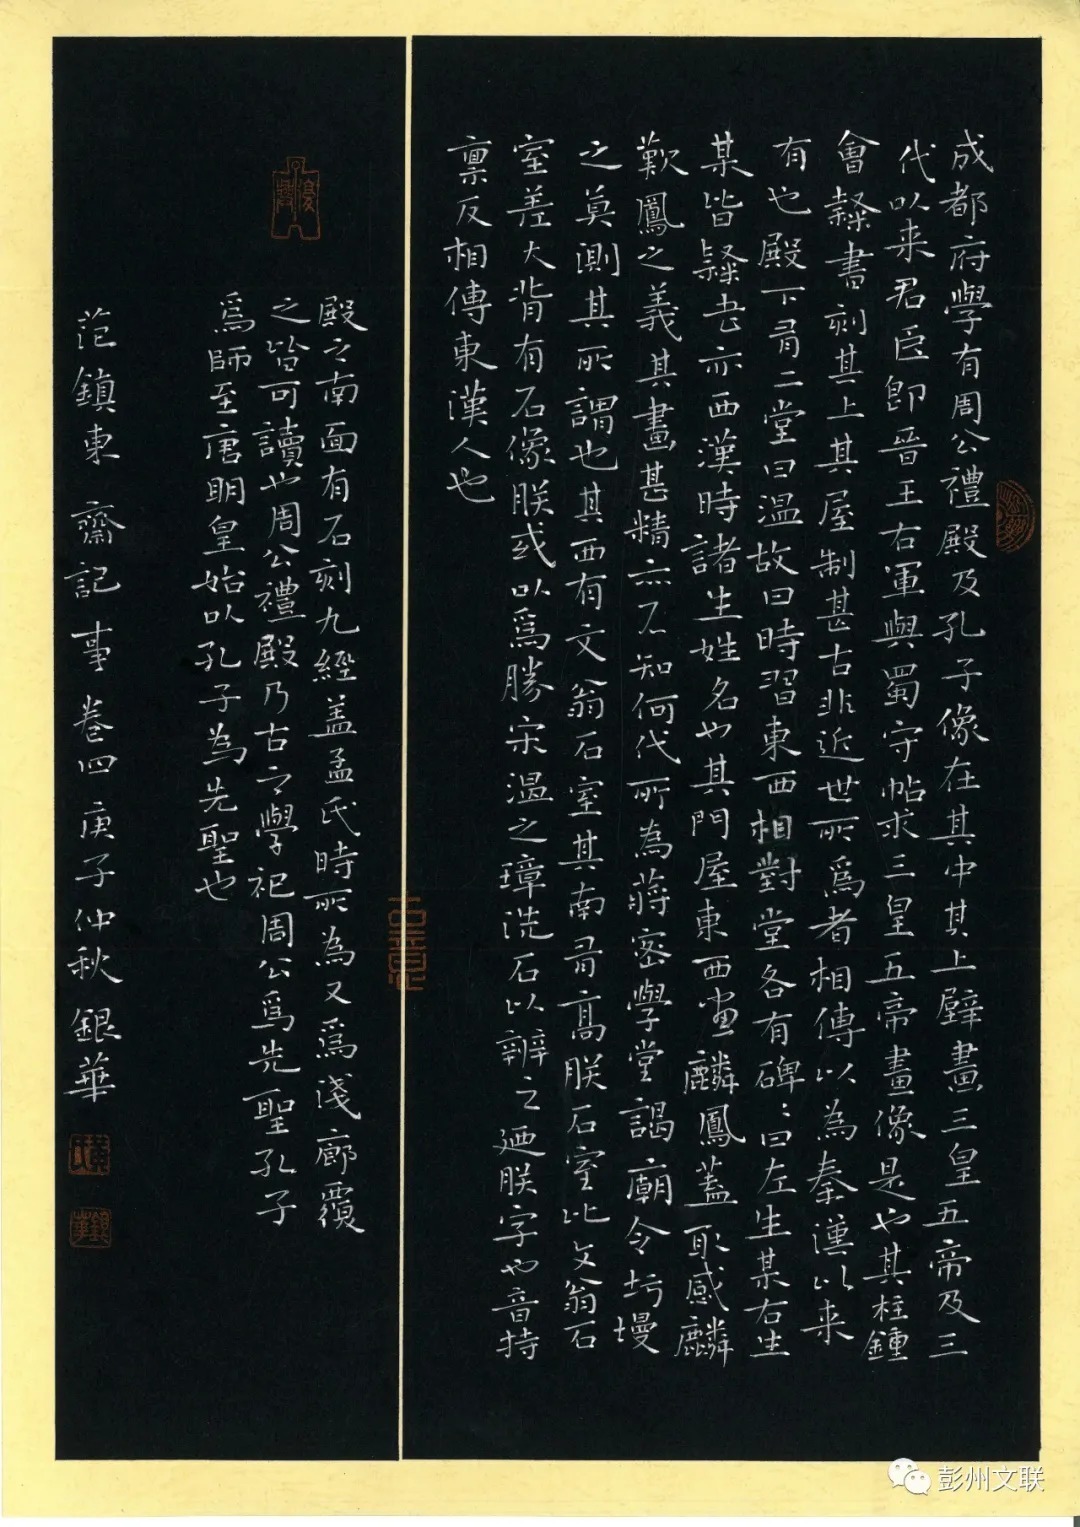 成都府學有周公禮殿及孔子像在其中其上壁畫三皇五帝及三
代以来君臣即晋王右軍與蜀守帖求三皇五帝畫像是也其柱鍾
會隸書刻其上其屋制甚古非近世所為者相傳以為秦漢以来
有也殿下有二堂曰温故曰時習東西相對堂各有碑:曰左生某右生
某皆隸書亦西漢時諸生姓名也其門屋東西畫麟鳳蓋取感麟
歎鳳之義其畫甚精亦不知何代所為蔣密學堂謁廟令圬墁
之莫測其所謂也其西有文翁石室其南有高朕石室比文翁石
室差大背有石像朕或以為勝宋温之璋洗石以辨之廼朕字也音持
禀反相傳東漢人也
殿之南面有石刻九經盖孟氏時所為又為淺廊覆
之皆可讀也周公禮殿乃古之學祀周公為先聖孔子
為師至唐明皇始以孔子為先聖也
范鎮東齋記事卷四庚子仲秋銀華
彭州文联